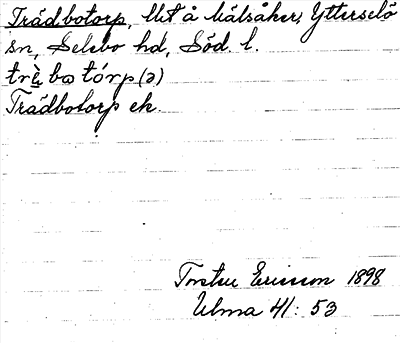 Trädbotorp, lht å Kälsåker, Ytterselö
sn, Selebo hd, Söd. l.
trä̀ bω tórp(ə)
Trädbotorp ek.
Torsten Ericsson 1898
Ulma 41: 53